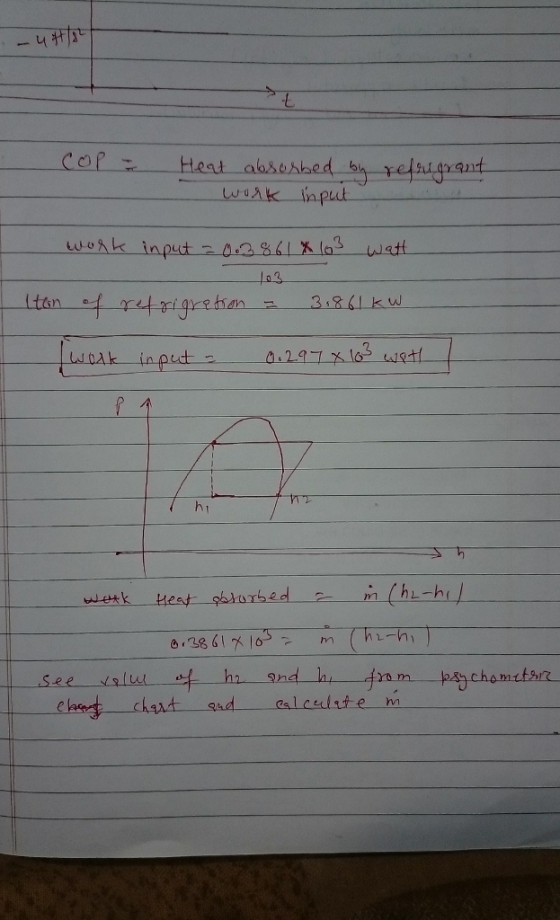 - 4 ft/s²
t
COP = Heat absorbed by refrigrant
work input
work input = 0.3861 × 10³ watt
103
1 ton of refrigretion = 3.861 kW
work input = 0.297 × 10³ watt
P
h1 h2
h
work Heat absorbed = ṁ (h2-h1)
0.3861 × 10³ = ṁ (h2-h1)
see value of h2 and h1 from psychometric
chart and calculate ṁ